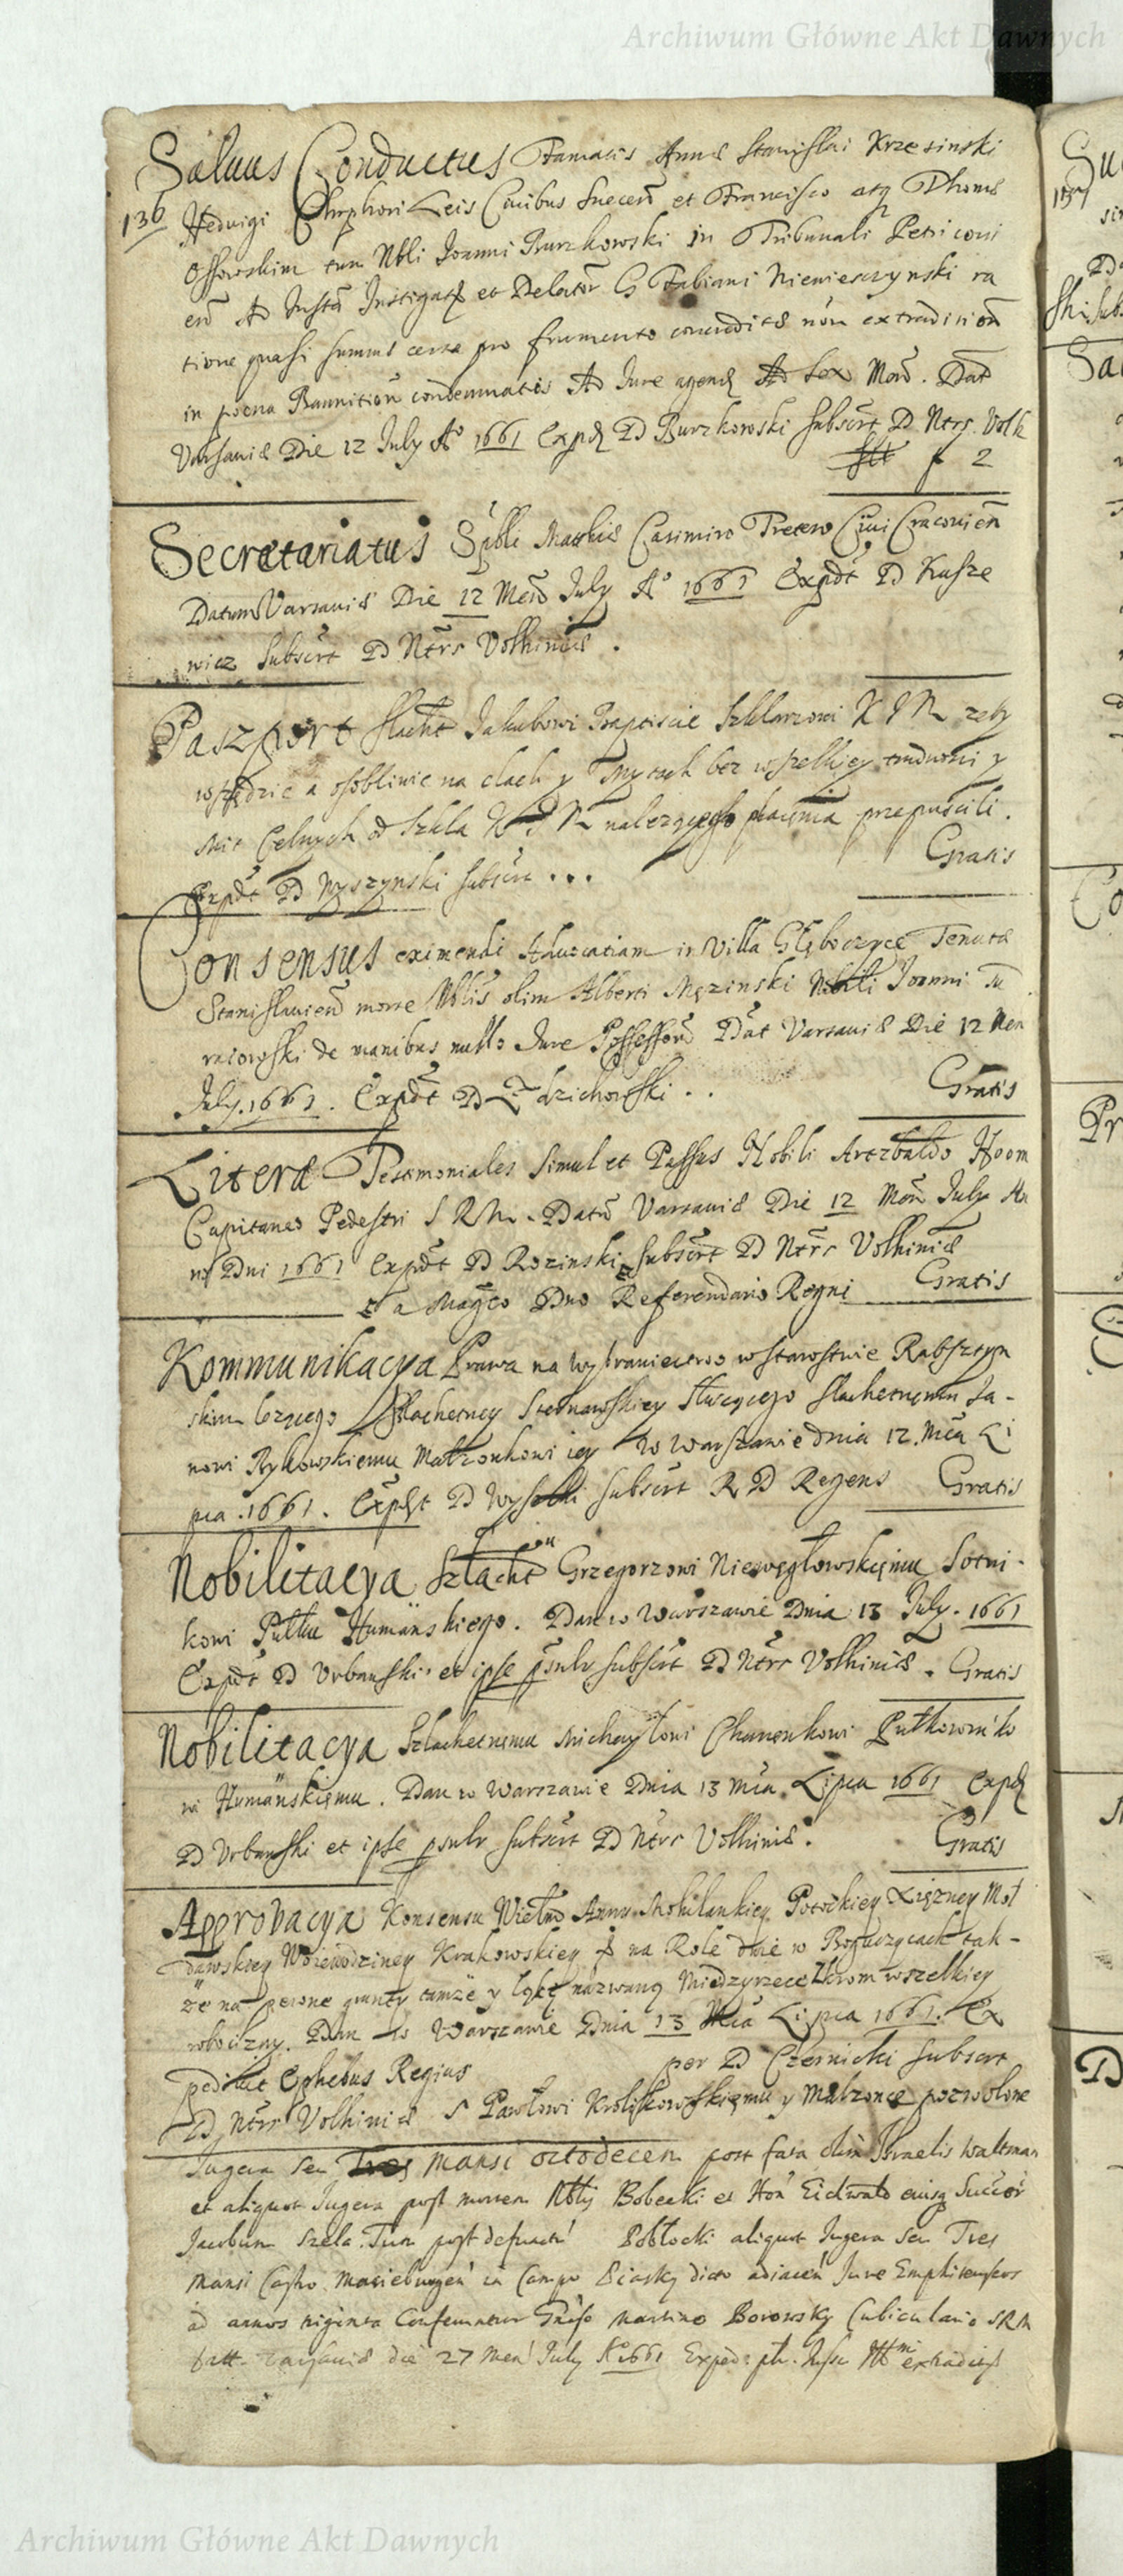 Archiwum Główne Akt Dawnych
Salvus Conductus Famatis Annæ Stanislai Krzesinski
136
Hedvigi Chrphori Leis Civibus Snecen et Francisco atq Thoma
Ossowskim tum Nbli Joanni Burzkowski in Tribunali Petricovi
en Ad Instã Instigatı et Delator G Fabiani Niemiesczynski ra
tione quasi summæ certæ pro frumento non extradition
in poena Bannition condemnatis Ad Jure agend Ad Sex Mens. Dat
Varsaviæ Die 12 July Aº 1661 Exp D Burzkowski Subscrt D Ntrs Volh
f 2
Secretariatus Spbli Mathiæ Casimiro Tretero Civi Cracovien
Datum Varsaviæ Die 12 Men July Aº 1661 Expdt D Kusze
wicz Subscrt D Ntrs Volhiniæ.
Paszport Slacht Jakubowi Baptiscie Szklarzowi K J M zeby
wszędzie a osobliwie na clach y Mytach bez wszelkiey trudnosci y
Celnych od Szkla K J M nalezącego płacenia przepuscili.
Gratis
Expdt D Wyszynski Subscrt ...
Consensus eximendi Advocatiam in Villa Głęboczyce Tenuta
Stanislavien morte Nblis olim Alberti Męzinski Nobili Joanni Mu
raiowski de manibus nullo Jure Possessorũ Dat Varsaviæ Die 12 Men
July. 1661. Expdt D Lędzichowski .. Gratis
Literæ Testimoniales Simul et Passus Nobili Arczbaldo Hoom
Capitaneo Pedestri S R M. Datũ Varsaviæ Die 12 Men July An
no Dni 1661 Expdt D Rozinski Subscrt D Ntrs Volhiniæ
et a Magco Dno Referendario Regni Gratis
Kommunikacya Prawa na Wybraniectwo w Starostwie Rabsztyn
skim lezącego Szlachetney Srednawskiey Sluzącego Slachetnemu Ja-
nowi Rykowskiemu Małzonkowi iey W Warszawie dnia 12. Mca Li
pca. 1661. Expdt D Wysocki Subscrt R D Regens Gratis
Nobilitacya Szlacht Grzegorzowi Niewęgłowskiemu Sotni-
kowi Pułku Humanskiego. Dan w Warszawie Dnia 13 July. 1661
Expdt D Urbanski et ipse psnlr subscrt D Ntrs Volhiniæ. Gratis
Nobilitacya Szlachetnemu Michayłowi Chanenkowi Pułkowniko
wi Humanskiemu. Dan w Warszawie Dnia 13 Mca Lipca 1661 Expd
D Urbanski et ipse psnlr subscrt D Ntrs Volhiniæ. Gratis
Approbacya Konsensu Wielm Anny Mohilankiey Potockiey Xiężney Moł
dawskiey Woiewodziney Krakowskiey na Role dwie w Boguczycach tak-
że na pewne grunty tamże y łąkę nazwaną Miedzyrzecze krom wszelkiey
robocizny. Dan w Warszawie Dnia 13 Mca Lipca 1661. Ex
pediuit Ephebus Regius per D Czernicki Subscrt
D Ntrs Volhiniæ S Pawłowi Krolikowskiemu y Małzonce pozwolone
Jugera seu Mansi octodecem post fata olim Israelis Waltman
et aliquot Jugera post mortem Nblij Bobecki et Hon Eichwald eiusq Succes
Jacobum Szela. Tum post defuncti Pobłocki aliquot Jugera seu Tres
Mansi Castro Marieburgen in Campo Piasky dicto adiacen Jure Emphiteutico
ad annos triginta Conferuntur Gnso Martino Borowsky Cubiculario SRM
Datt. Varsaviæ die 27 Men July Aº 1661 Exped: extradidit
Archiwum Główne Akt Dawnych